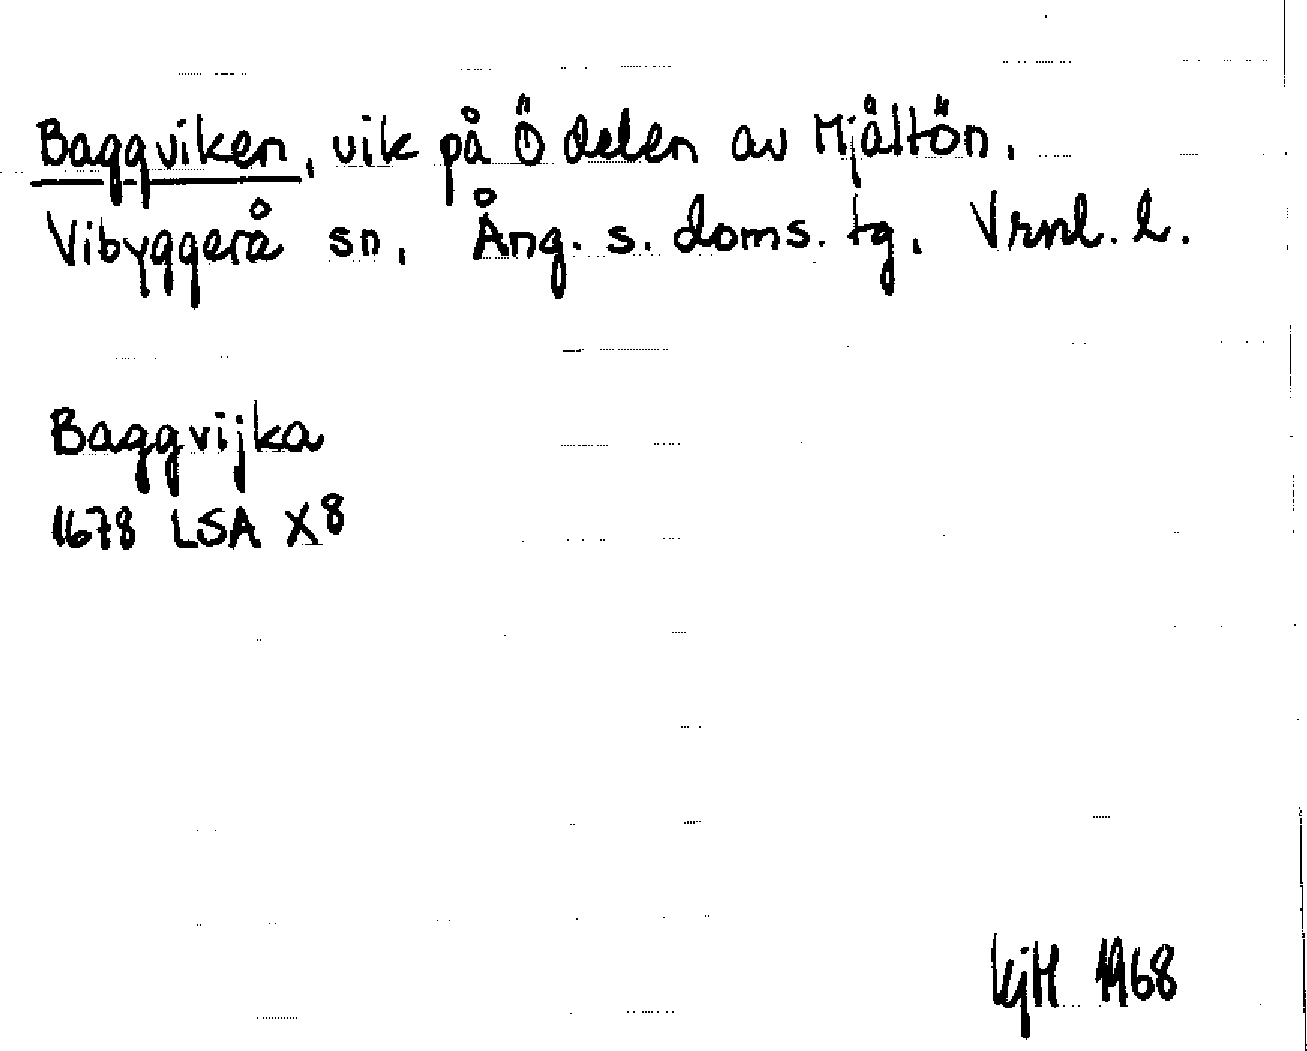 Baggviken, vik på Ö delen av Mjältön,
Vibyggerå sn, Ång. s. doms. tg. Vrnl. l.
Baggvijka
1678 LSA X8
KjH 1968